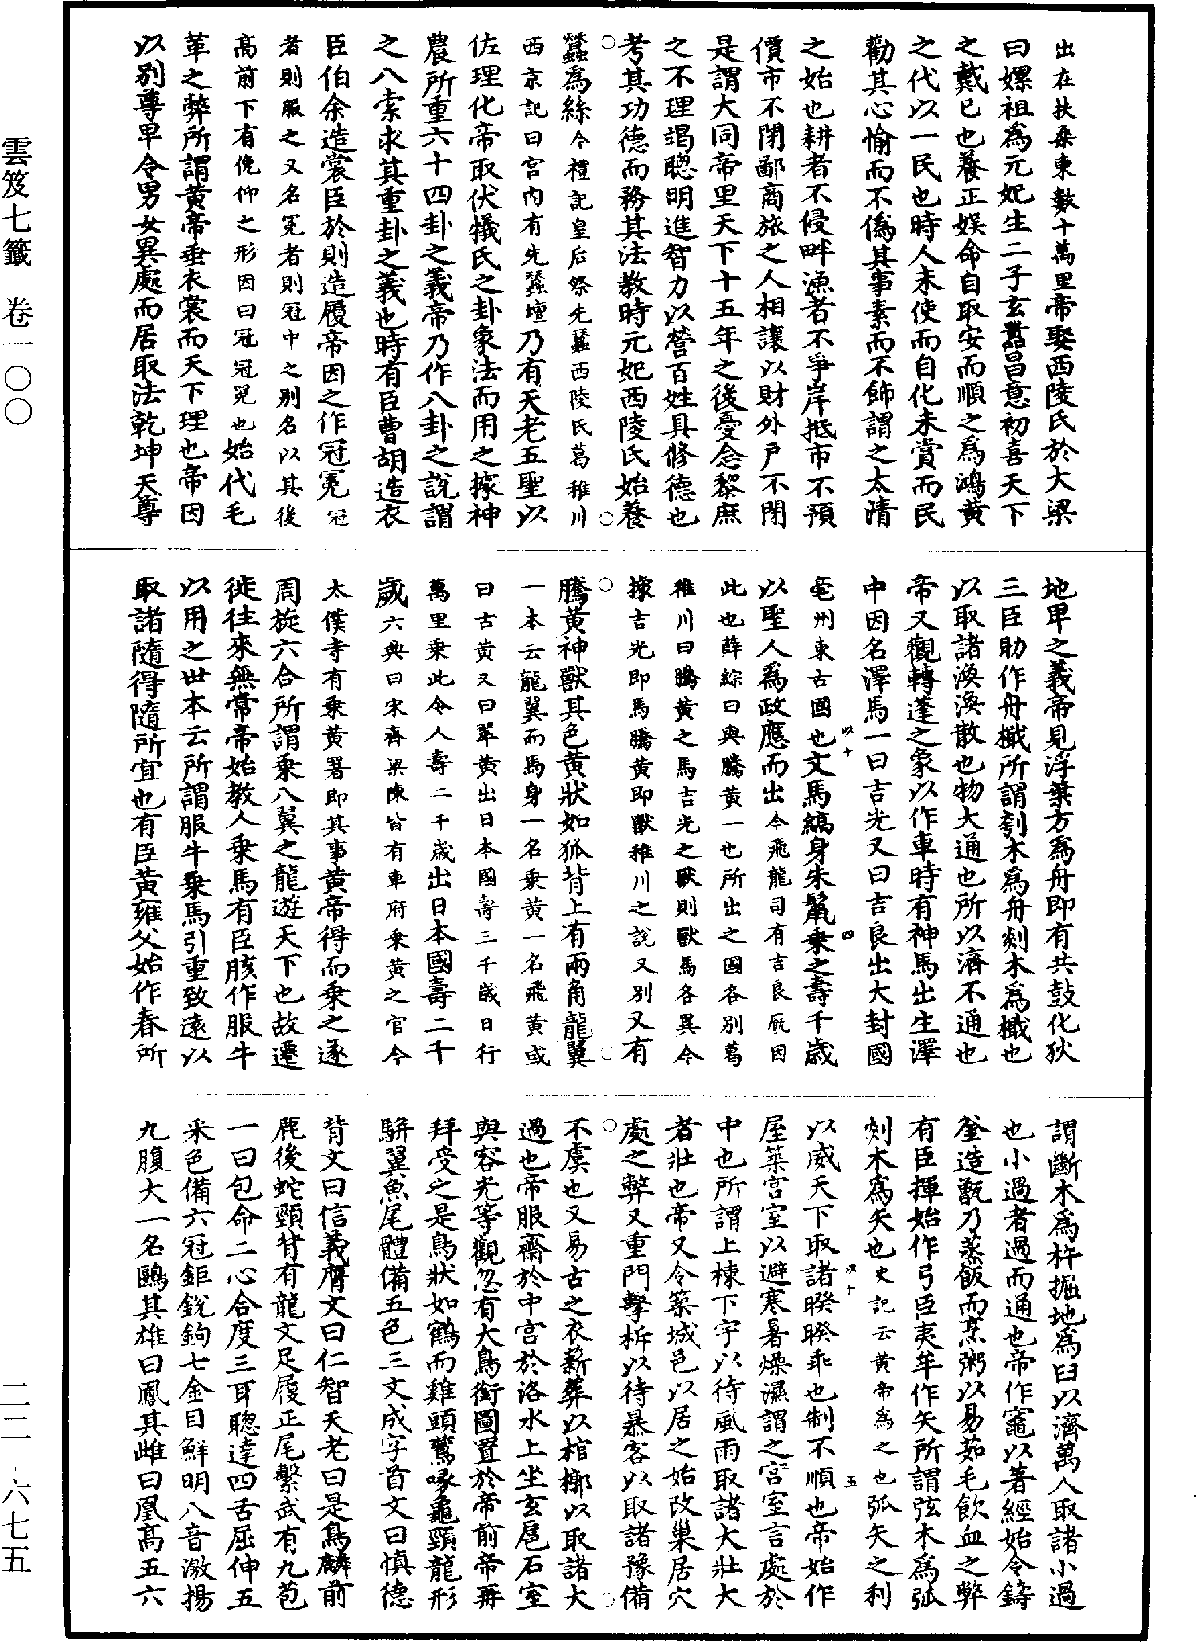 出在扶桑東數十萬里帝娶西陵氏於大梁
曰嫘祖為元妃生二子玄囂昌意初喜天下
之戴已也養正娛命自取安而順之為鴻黃
之代以一民也時人未使而自化未賞而民
勸其心愉而不偽其事素而不飾謂之太清
之始也耕者不侵畔漁者不爭岸抵市不預
價市不閉鄙商旅之人相讓以財外戶不閉
是謂大同帝里天下十五年之後憂念黎庶
之不理竭聰明進智力以營百姓具修德也
考其功德而務其法教時元妃西陵氏始養
蠶為絲今禮記皇后祭先蠶西陵氏葛稚川
西京記曰宮內有先蠶壇乃有天老五聖以
佐理化帝取伏犧氏之卦象法而用之據神
農所重六十四卦之義帝乃作八卦之說謂
之八索求其重卦之義也時有臣曹胡造衣
臣伯余造裳臣於則造履帝因之作冠冕冠
者則服之又名冕者則冠中之別名以其後
高前下有俛仰之形因曰冠冕也始代毛
革之弊所謂黃帝垂衣裳而天下理也帝因
以別尊卑令男女異處而居取法乾坤天尊
地卑之義帝見浮葉方為舟即有共鼓化狄
三臣助作舟檝所謂刳木為舟剡木為檝也
以取諸渙渙散也物大通也所以濟不通也
帝又觀轉蓬之象以作車時有神馬出生澤
中因名澤馬一曰吉光又曰吉良出大封國
亳州東古國也文馬縞身朱鬣乘之壽千歲
以聖人為政應而出今飛龍司有吉良厩因
此也薛綜曰與騰黃一也所出之國各別葛
稚川曰騰黃之馬吉光之獸則獸馬各異今
據吉光即馬騰黃即獸稚川之說又別又有
騰黃神獸其色黃狀如狐背上有兩角龍翼
一本云龍翼而馬身一名乘黃一名飛黃或
曰古黃又曰翠黃出日本國壽三千歲日行
萬里乘此令人壽二千歲出日本國壽二千
歲六典曰宋齊梁陳皆有車府乘黃之官今
太僕寺有乘黃署即其事黃帝得而乘之遂
周旋六合所謂乘八翼之龍遊天下也故遷
徙往來無常帝始教人乘馬有臣胲作服牛
以用之世本云所謂服牛乘馬引重致遠以
取諸隨得隨所宜也有臣黃雍父始作舂所
謂斷木為杵掘地為臼以濟萬人取諸小過
也小過者過而通也帝作竈以著經始令鑄
釜造甑乃蒸飯而烹粥以易茹毛飲血之弊
有臣揮始作弓臣夷牟作矢所謂弦木為弧
剡木為矢也史記云黃帝為之也弧矢之利
以威天下取諸暌暌乖也制不順也帝始作
屋築宮室以避寒暑燥濕謂之宮室言處於
中也所謂上棟下宇以待風雨取諸大壯大
者壯也帝又令築城邑以居之始改巢居穴
處之弊又重門擊柝以待暴客以取諸豫備
不虞也又易古之衣薪葬以棺槨以取諸大
過也帝服齋於中宮於洛水上坐玄扈石室
與容光等觀忽有大鳥銜圖置於帝前帝再
拜受之是鳥狀如鶴而雞頭鷰喙龜頸龍形
駢翼魚尾體備五色三文成字首文曰慎德
背文曰信義膺文曰仁智天老曰是鳥麟前
鹿後蛇頸背有龍文足履正尾繫武有九苞
一曰包命二心合度三耳聰達四舌屈伸五
采色備六冠鉅銳鉤七金目鮮明八音激揚
九腹大一名鷗其雄曰鳳其雌曰凰高五六
雲笈七籤 卷一〇〇
二二-六七五